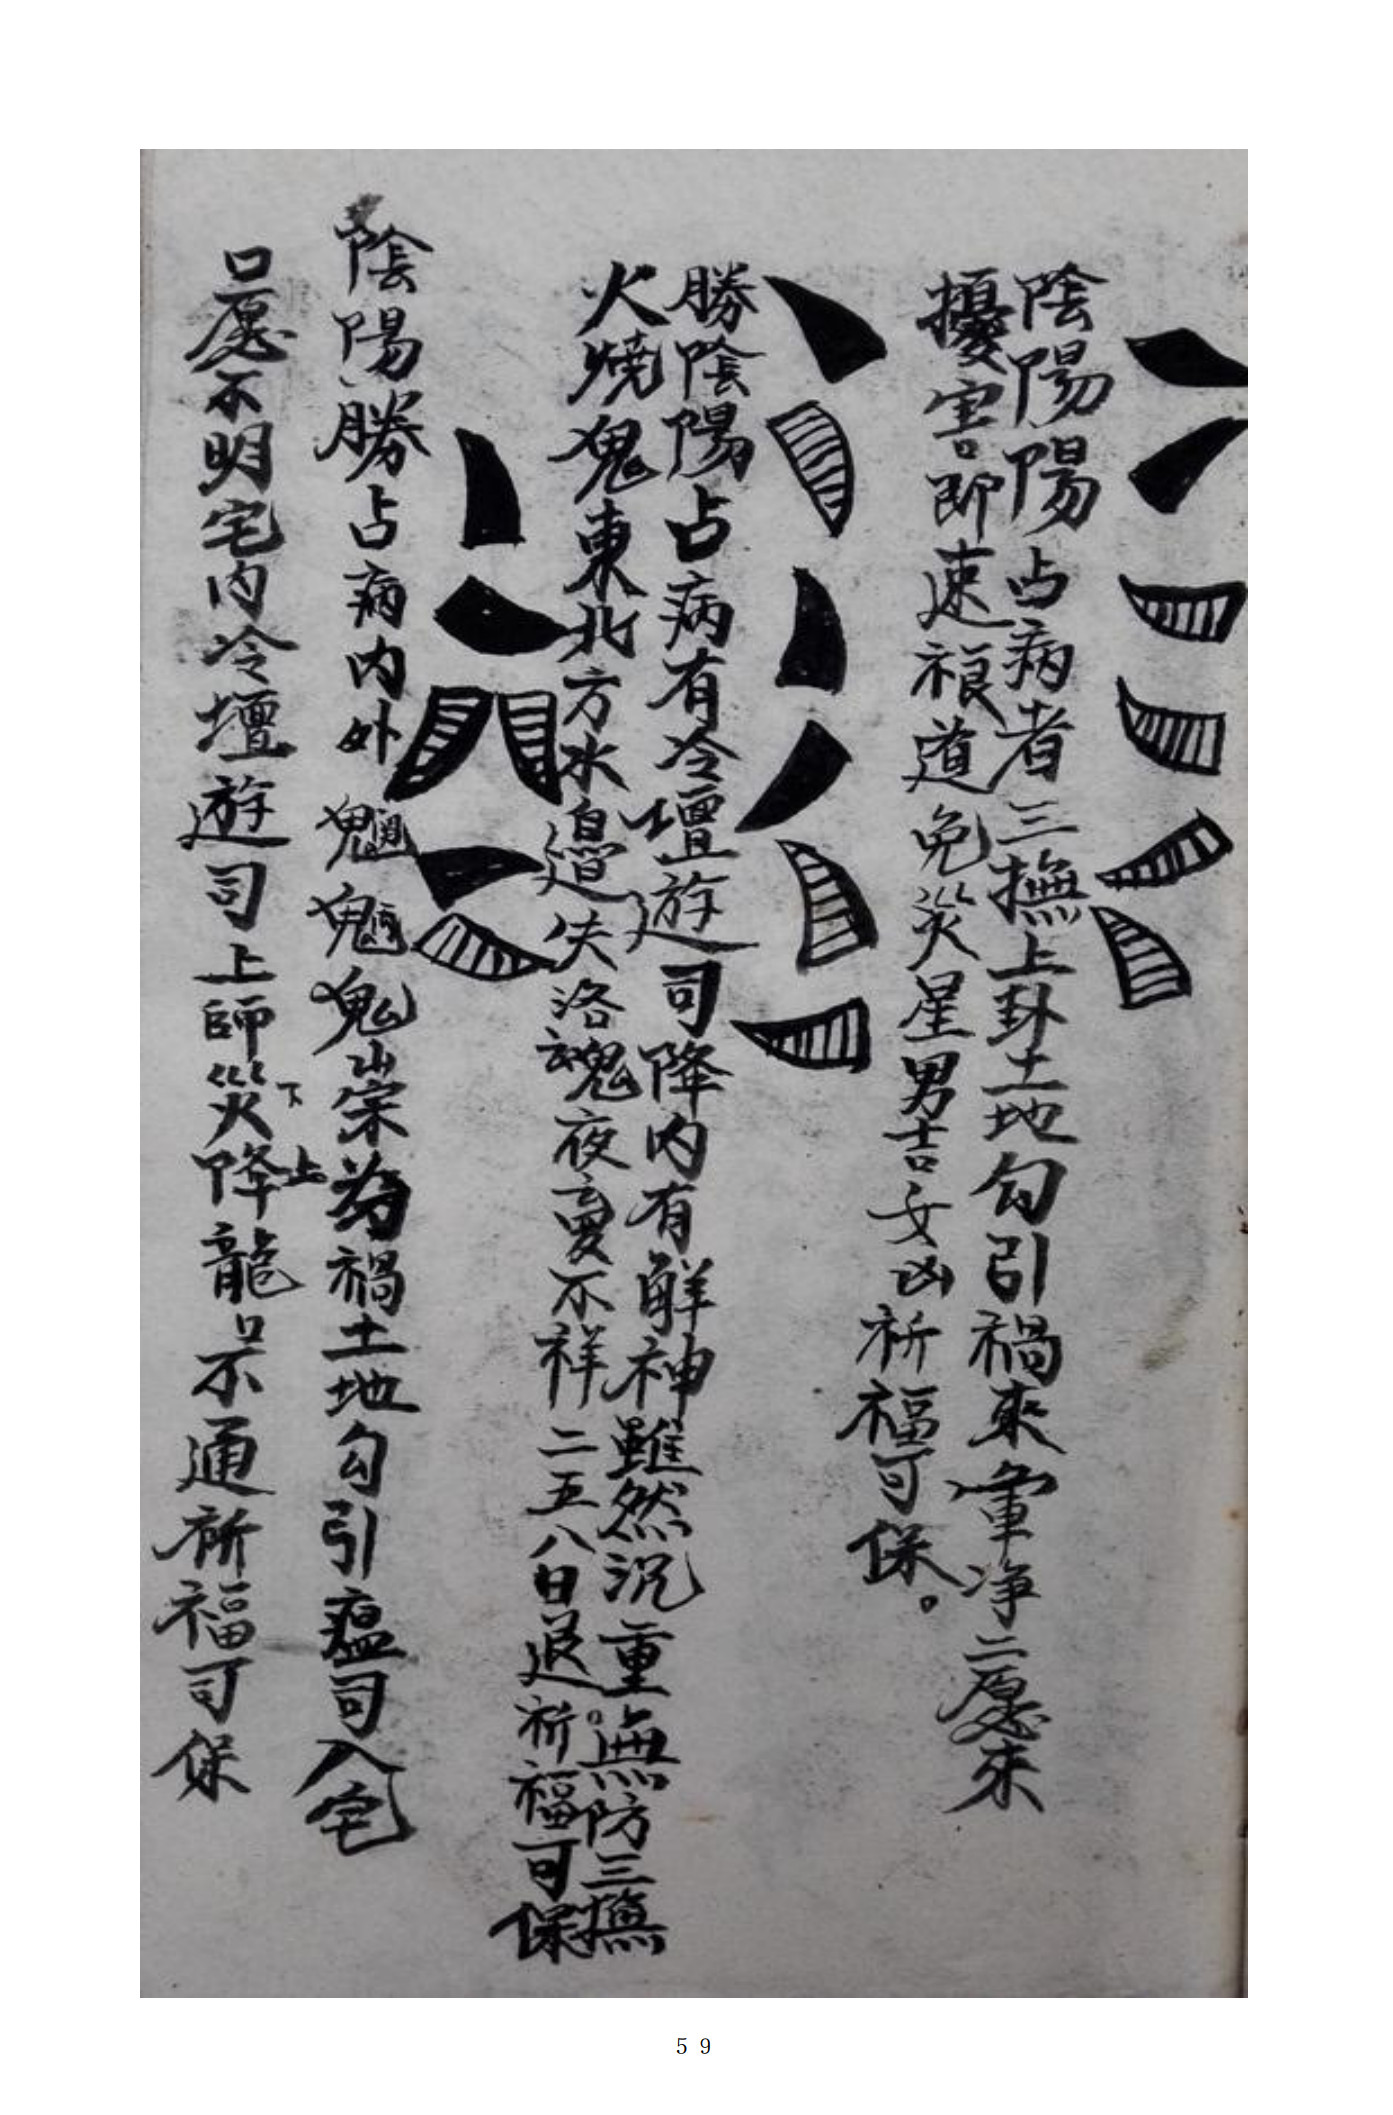 陰陽陽占病者三撫上卦土地勾引禍來軍净二愿未
擾害即速禳道免災星男吉女凶祈福可保。
勝陰陽占病有冷壇遊司降内有鮮神雖然沉重。無防三撫
火燒鬼東北方水邊失洛魂夜夢不祥二五八日退祈福可保
陰陽勝占病内外魍魎鬼祟為禍土地勾引瘟司入宅
口愿不明宅内冷壇遊司上師災下降上龍口不通祈福可保
59